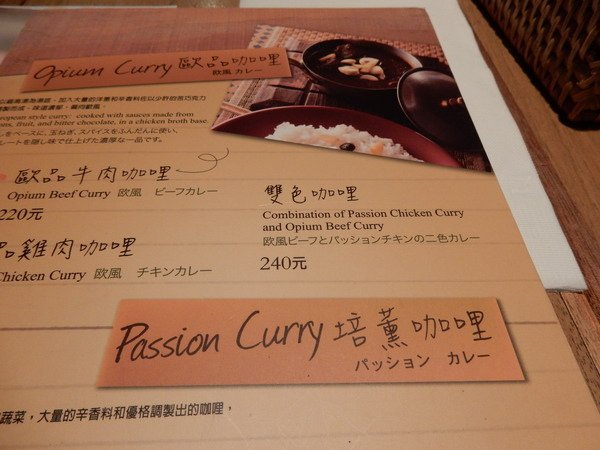 Opium Curry 歐品咖哩
欧風 カレー
加入大量的洋蔥和辛香料佐以少許的苦巧克力
ropean style curry: cooked with sauces made from
ons, fruit, and bitter chocolate, in a chicken broth base.
をベースに、玉ねぎ、スパイスをふんだんに使い、
レートを隠し味で仕上げた濃厚な一品です。
歐品牛肉咖哩
Opium Beef Curry 欧風 ビーフカレー
220元
品雞肉咖哩
Chicken Curry 欧風 チキンカレー
雙色咖哩
Combination of Passion Chicken Curry
and Opium Beef Curry
欧風ビーフとパッションチキンの二色カレー
240元
Passion Curry 培薰咖哩
パッション カレー
蔬菜，大量的辛香料和優格調製出的咖哩，